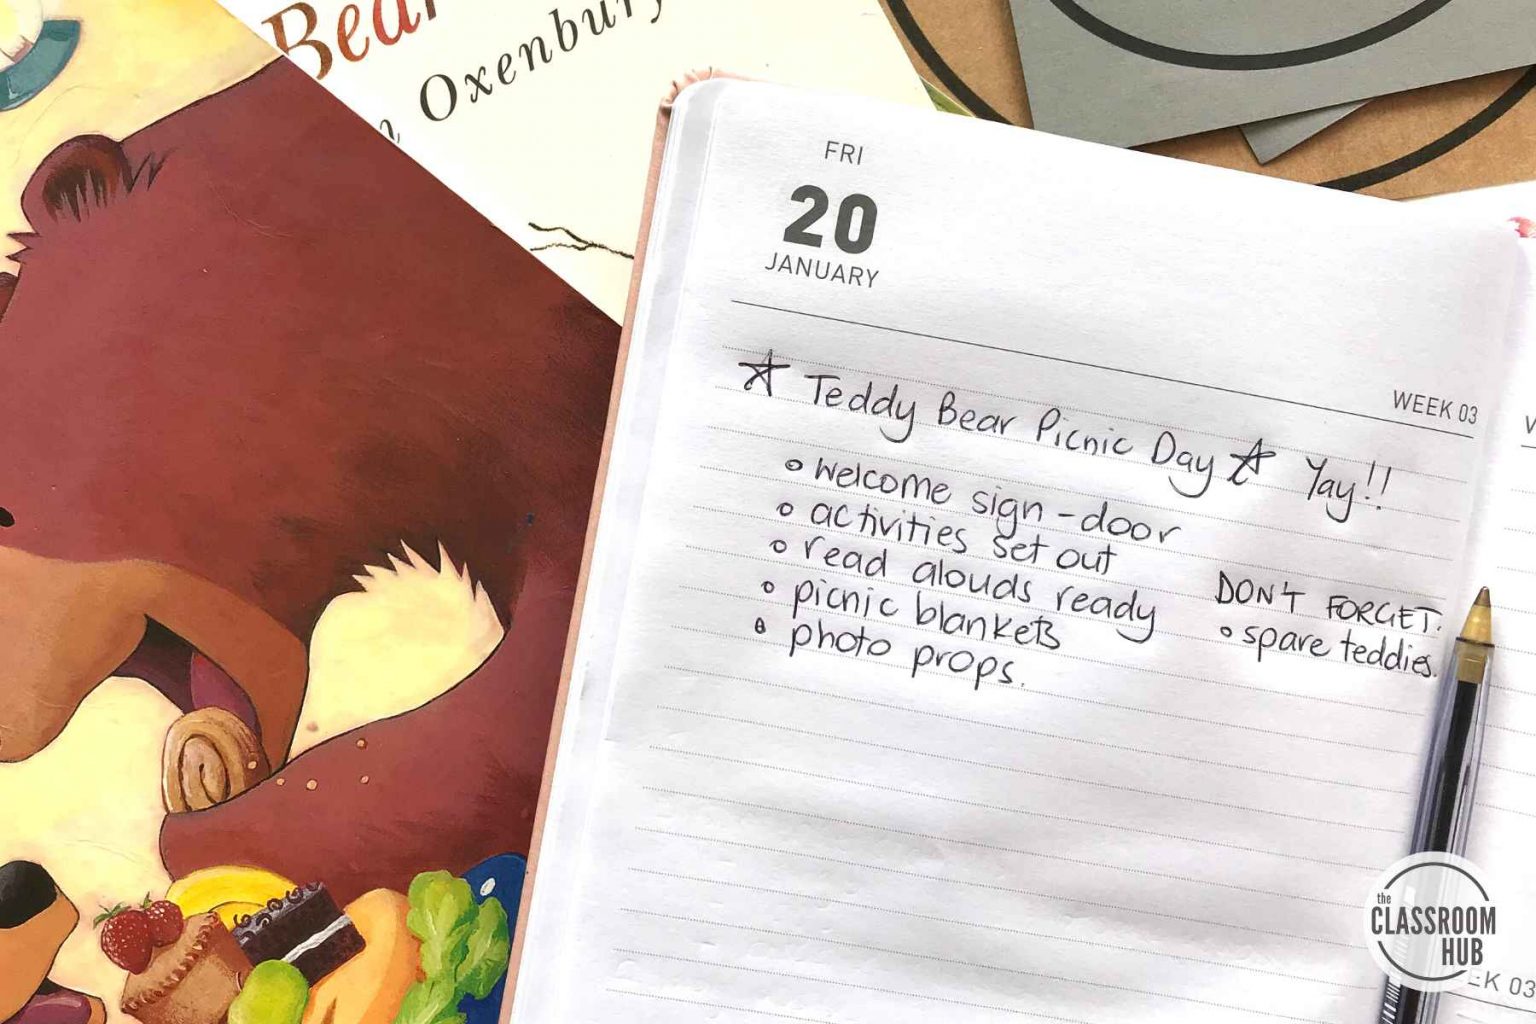 Bear
Oxenbury
FRI
20
JANUARY
WEEK 03
☆ Teddy Bear Picnic Day ☆ Yay!!
o welcome sign - door
o activities set out
o read alouds ready
o picnic blankets
o photo props.
DON'T FORGET.
o spare teddies.
the
CLASSROOM
HUB
EK 03